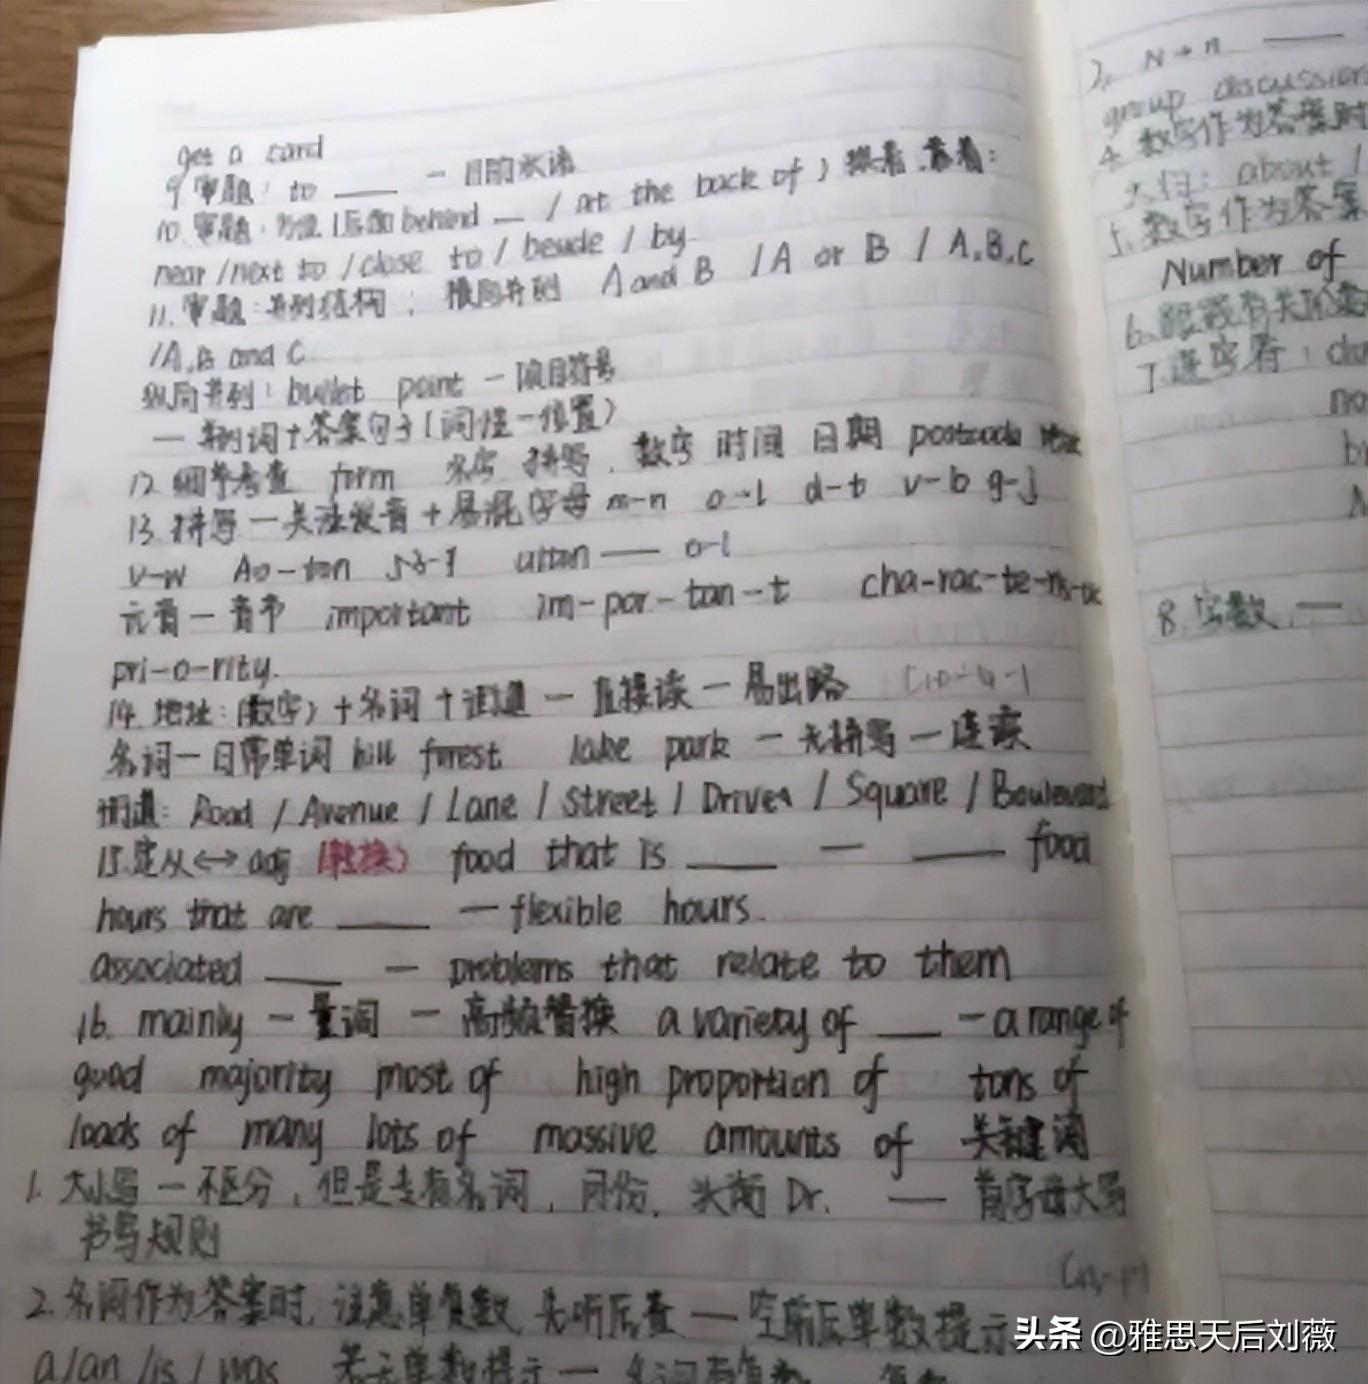 get a card
9. 审题: to ___ - 目的状语
10. 审题: 方位 (后面 behind __ / at the back of) 挨着、靠着:
near / next to / close to / beside / by
11. 审题: 并列结构: 横向并列 A and B / A or B / A, B, C
/ A, B and C
纵向并列: bullet point - 项目符号
- 并列词 + 答案句子 (词性 - 位置)
12. 细节考查 form 名字 拼写, 数字 时间 日期 postcode
13. 拼写 - 关注发音 + 易混字母 m-n o-l d-t v-b g-j
v-w - ton ___ o-l
元音 - 音节 important im-por-tan-t cha-rac-te-ris-tic
pri-o-rity.
14. 地址: (数字) + 名词 + 街道 - 直接读 - 易出路
名词 - 日常单词 hill forest lake park - 无拼写 - 连读
街道: Road / Avenue / Lane / Street / Drive / Square / Boulevard
15. 定从 ↔ adj (转换) food that is ___ - ___ food
hours that are ___ - flexible hours.
associated ___ - problems that relate to them
16. mainly - 量词 - 高频替换 a variety of ___ - a range of
good majority most of high proportion of tons of
loads of many lots of massive amounts of 关键词
1. 大小写 - 不区分, 但是专有名词, 月份, 头衔 Dr. — 首字母大写
书写规则
2. 名词作为答案时, 注意单复数 先听后查 — 空前后单数提示
a/an / is / was 若无单数提示 —
N + n ___
group discussion
4. 数字作为答案时
about /
5. 数字作为答案
Number of
6.
7.
8. 字数. —
头条 @雅思天后刘薇